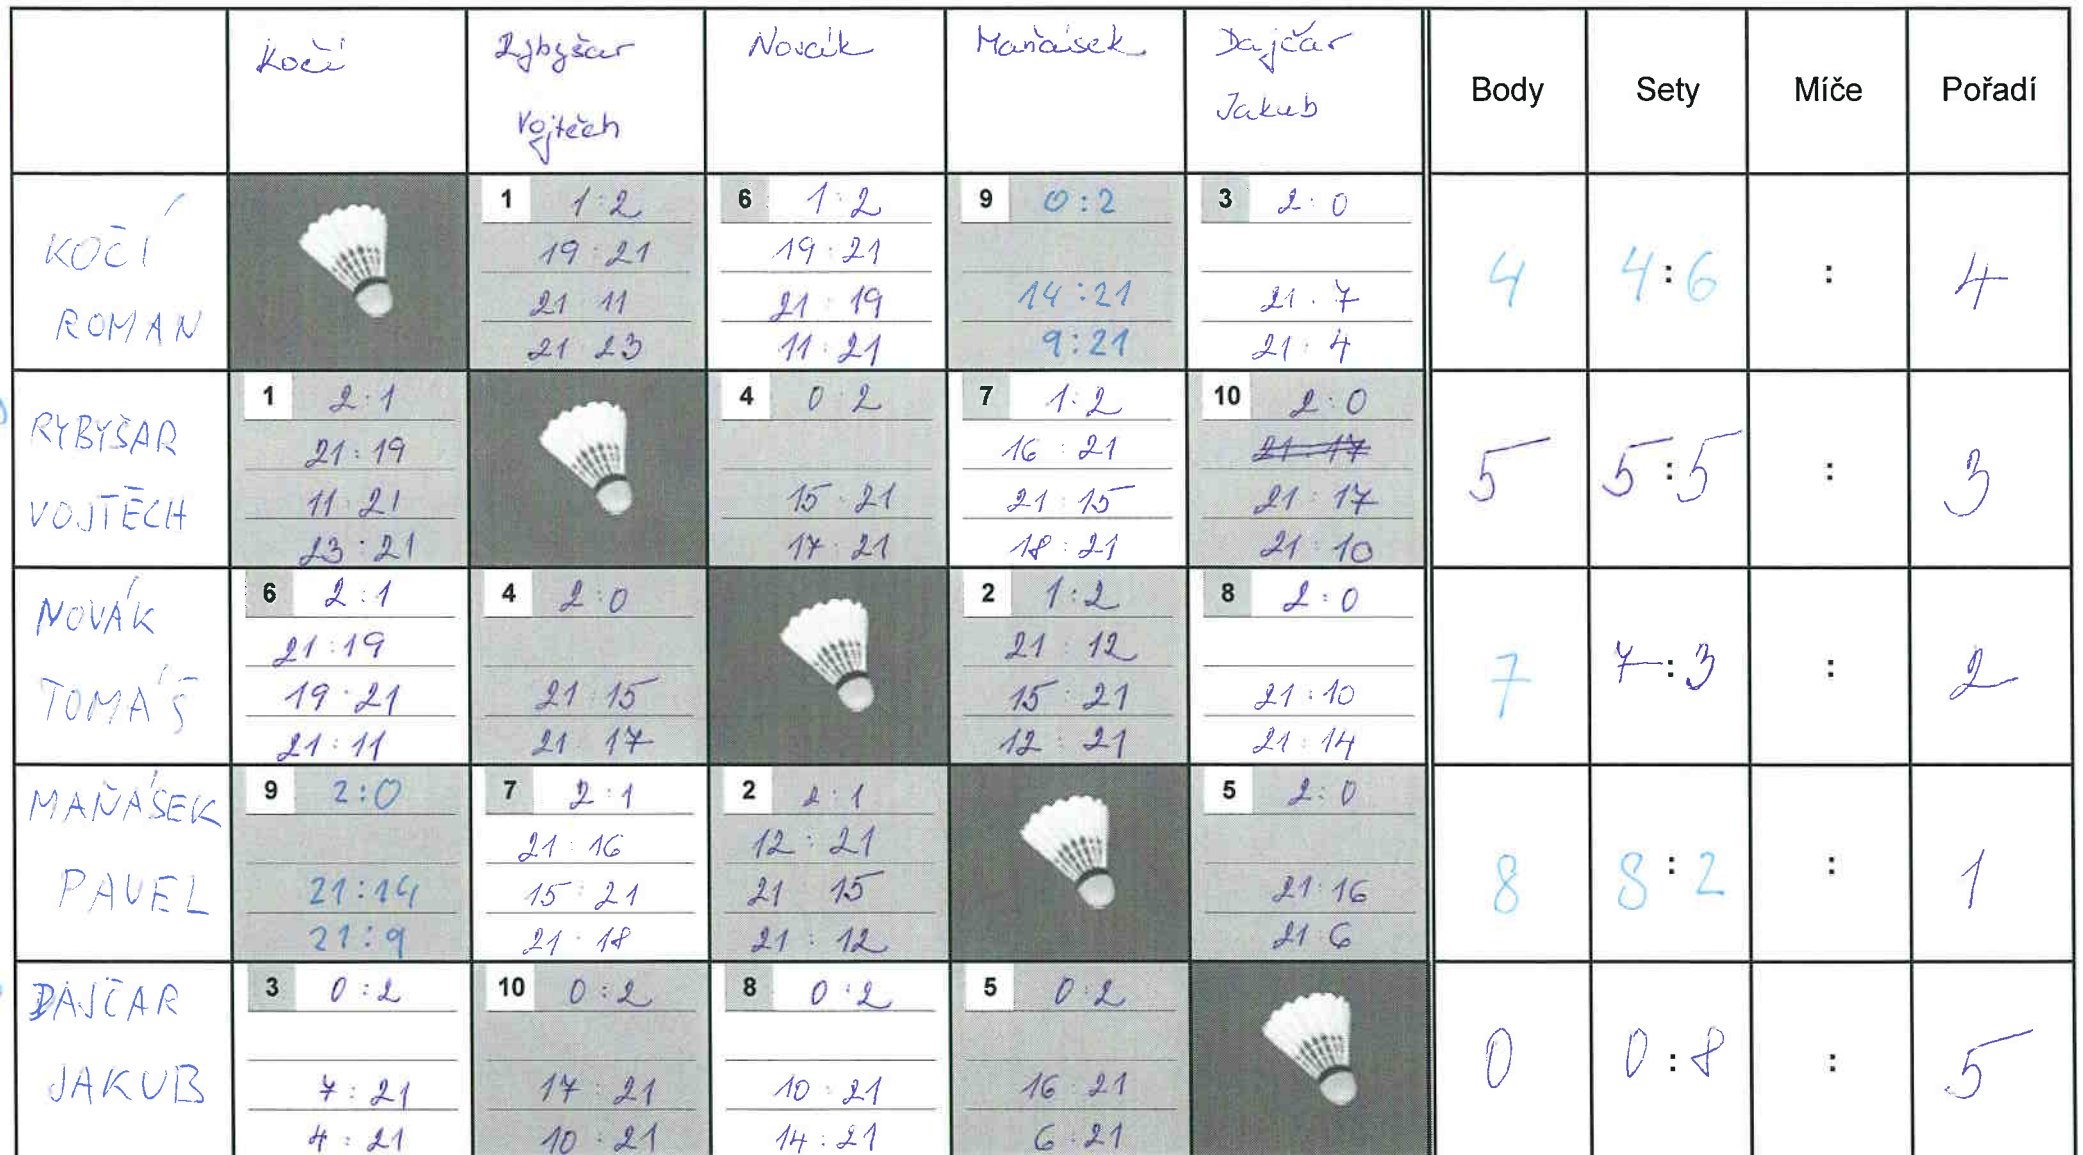 Kočí
Rybyšar
Vojtěch
Novák
Maňásek
Dajčar
Jakub
Body
Sety
Míče
Pořadí
KOČÍ
ROMAN
1 1:2
19:21
21 11
21 23
6 1:2
19:21
21:19
11:21
9 0:2
14:21
9:21
3 2:0
21:7
21:4
4
4:6
:
4
RYBYŠAR
VOJTĚCH
1 2:1
21:19
11:21
23:21
4 0 2
15:21
17:21
7 1:2
16:21
21:15
18:21
10 2:0
21:17
21:17
21:10
5
5:5
:
3
NOVÁK
TOMÁŠ
6 2:1
21:19
19:21
21:11
4 2:0
21:15
21 17
2 1:2
21:12
15:21
12:21
8 2:0
21:10
21:14
7
7:3
:
2
MAŇÁSEK
PAVEL
9 2:0
21:14
21:9
7 2:1
21:16
15:21
21:18
2 2:1
12:21
21 15
21:12
5 2:0
21:16
21:6
8
8:2
:
1
DAJČAR
JAKUB
3 0:2
7:21
4:21
10 0:2
17:21
10:21
8 0:2
10:21
14:21
5 0:2
16:21
6:21
0
0:8
:
5